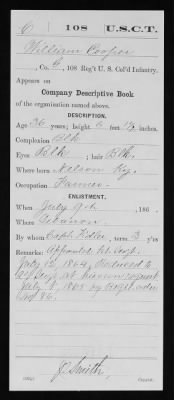 C 108 U.S.C.T.
William Cooper
, Co. C, 108 Reg't U. S. Col'd Infantry.
Appears on
Company Descriptive Book
of the organization named above.
DESCRIPTION.
Age 36 years; height 5 feet inches.
Complexion Blk
Eyes Blk; hair Blk.
Where born Nelson Ky.
Occupation Farmer
ENLISTMENT.
When July 9th, 186 .
Where Lebanon
By whom Capt Fidler; term 3 y'rs
Remarks: Appointed 1st Sergt.
July 12, 1864, Reduced to
Sergt at his own request
July 8, 1865 by Regtl order
No 86.
J. Smith,
Copyist.